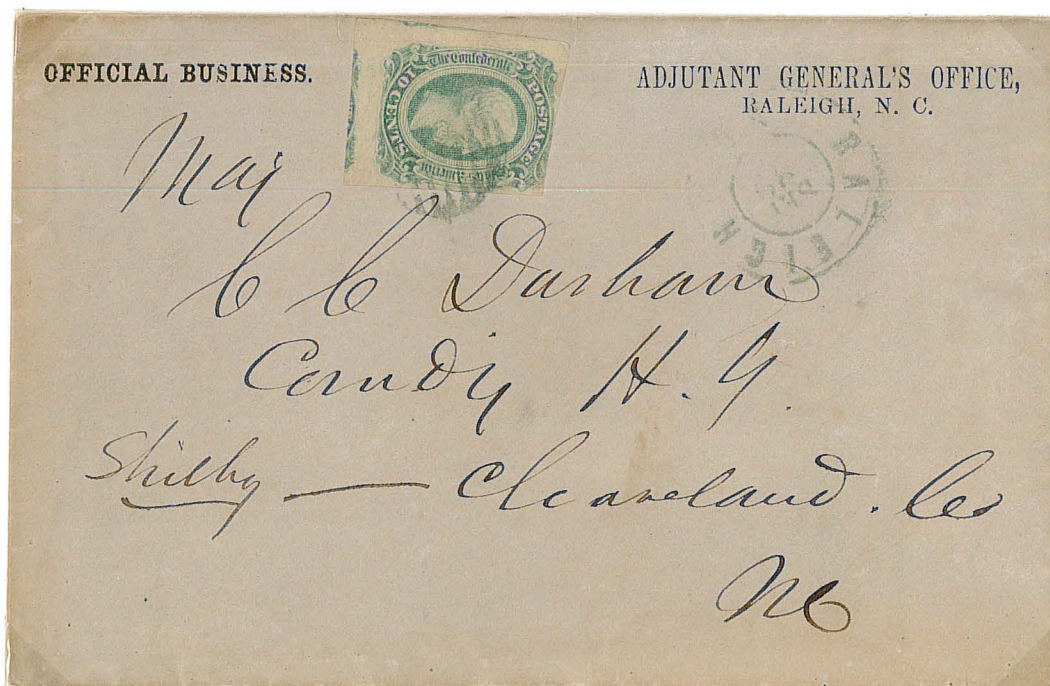 OFFICIAL BUSINESS.
The Confederate
POSTAGE
States America
10 CENTS
ADJUTANT GENERAL'S OFFICE,
RALEIGH, N. C.
RALEIGH
Maj
C C Durham
Comdg H. G.
Shelby — Cleaveland. Co
NC